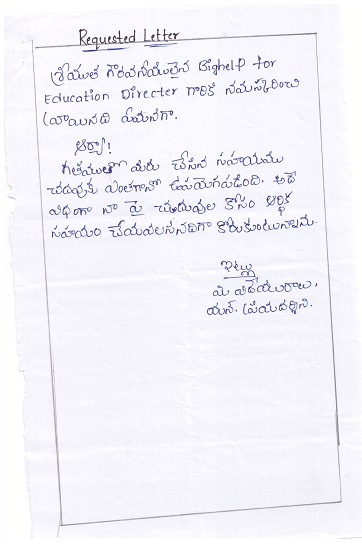 Requested Letter
శ్రీయుత గౌరవనీయులైన Bighelp for
Education Directer గారికి నమస్కరించి
వ్రాయునది ఏమనగా.
ఆర్యా!
గతములో మీరు చేసిన సహాయము
చదువుకు ఎంతగానో ఉపయోగపడింది. అదే
విధంగా నా పై చదువుల కోసం ఆర్థిక
సహాయం చేయవలసినదిగా కోరుకుంటున్నాను.
ఇట్లు
మీ విదేయురాలు,
యన్. ప్రియదర్శిని.